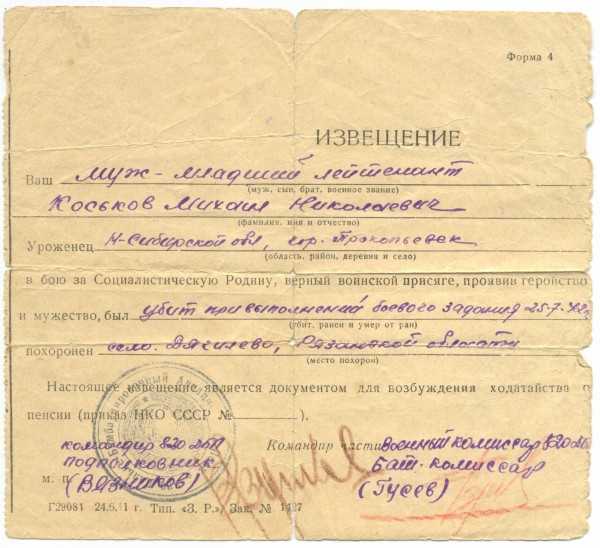 Форма 4
ИЗВЕЩЕНИЕ
Ваш муж - младший лейтенант
(муж, сын, брат, военное звание)
Коськов Михаил Николаевич
(фамилия, имя и отчество)
Уроженец Н-Сибирской обл, гор. Прокопьевск
(область, район, деревня и село)
в бою за Социалистическую Родину, верный воинской присяге, проявив геройство
и мужество, был убит при выполнений боевого задания 25-7-42г
(убит, ранен и умер от ран)
похоронен село. Дягилево, Рязанской области
(место похорон)
Настоящее извещение является документом для возбуждения ходатайства о
пенсии (приказ НКО СССР № ).
командир 820 Командир части военный комиссар 820
подполковник Бат. комиссар
м. п. (Вязников) (Гусев)
Г29081 24.6.41 г. Тип. «З. Р.» Зак. № 1427